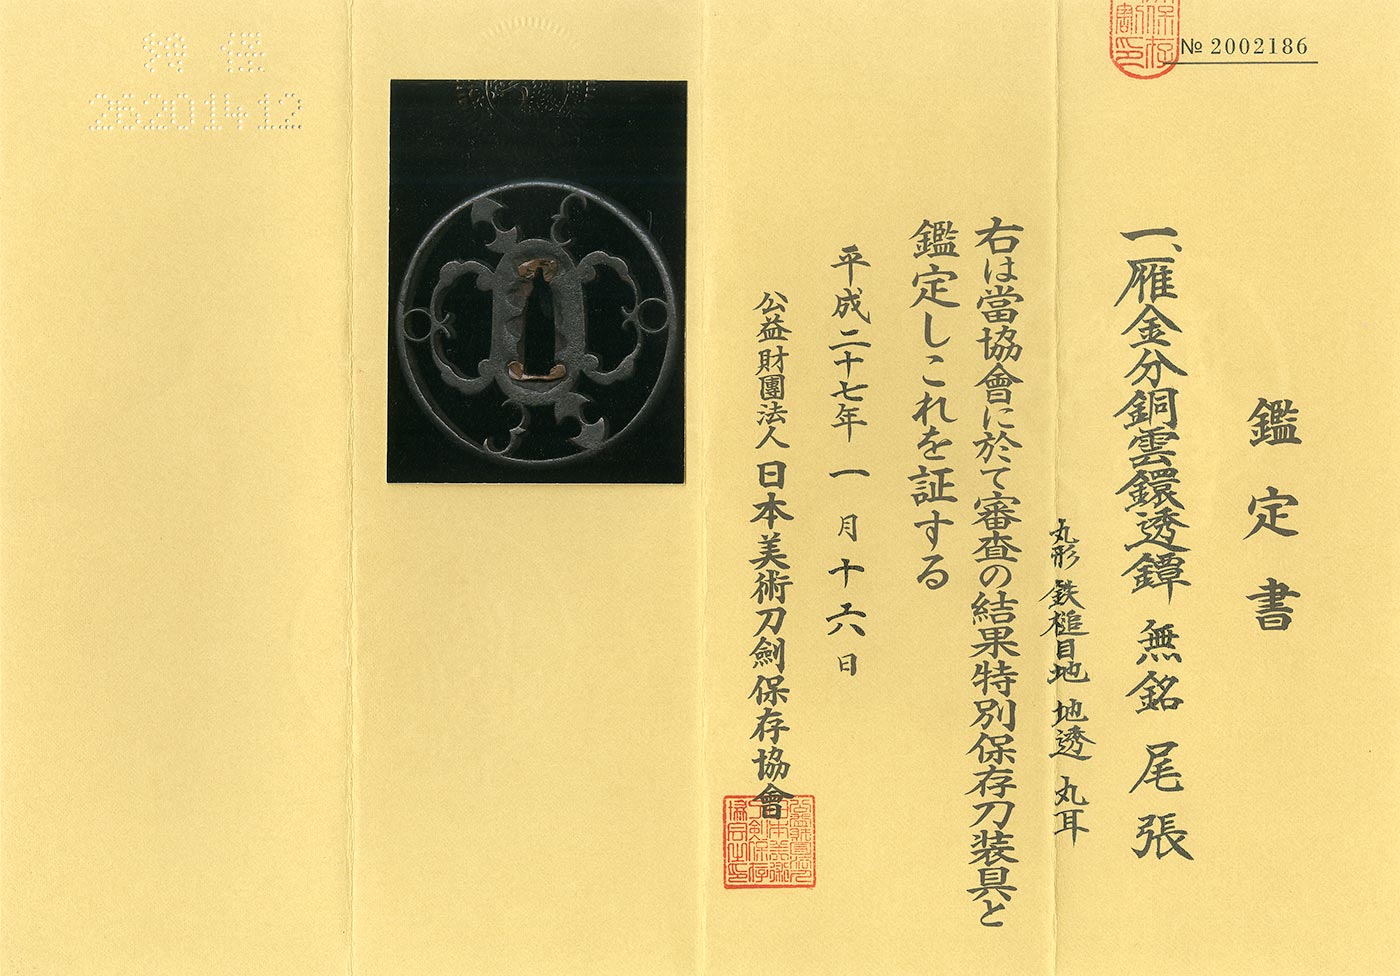 № 2002186
鑑定書
一、雁金分銅雲鐶透鐔 無銘 尾張
丸形 鉄槌目地 地透 丸耳
右は當協會に於て審査の結果特別保存刀装具と
鑑定しこれを証する
平成二十七年 一月十六日
公益財團法人 日本美術刀劍保存協會
特保
26201412